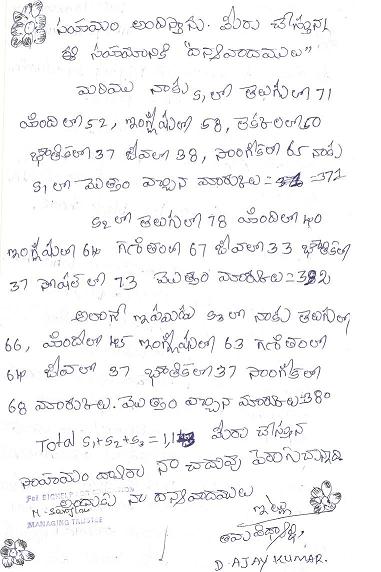 సహాయం అందిస్తారు. మీరు చేస్తున్న
ఈ సహాయానికి "ధన్యవాదములు"
మరియు నాకు S1 లో తెలుగులో 71
హిందీలో 52, ఇంగ్లీషులో 58, లో 60
భౌతికలో 37 జీవలో 38, సాంఘీకలో 65 నాకు
S1 లో మొత్తం వచ్చిన మార్కులు = 371
S2 లో తెలుగులో 78 హిందీలో 40
ఇంగ్లీషులో 64 గణితంలో 67 జీవలో 33 భౌతికలో
37 సోషల్ లో 73 మొత్తం మార్కులు = 382
అలాగే ఇపుడు S3 లో నాకు తెలుగులో
66, హిందీలో 45 ఇంగ్లీషులో 63 గణితంలో
64 జీవలో 37 భౌతికలో 37 సాంఘీకలో
68 మార్కులు. మొత్తం వచ్చిన మార్కులు = 380
Total S1+S2+S3 = మీరు చేస్తున్న
సహాయం నా చదువు
For
అందుకు నా ధన్యవాదములు
MANAGING TRUSTEE
ఇట్లు
తమ విధ్యార్థి,
D. AJAY KUMAR.